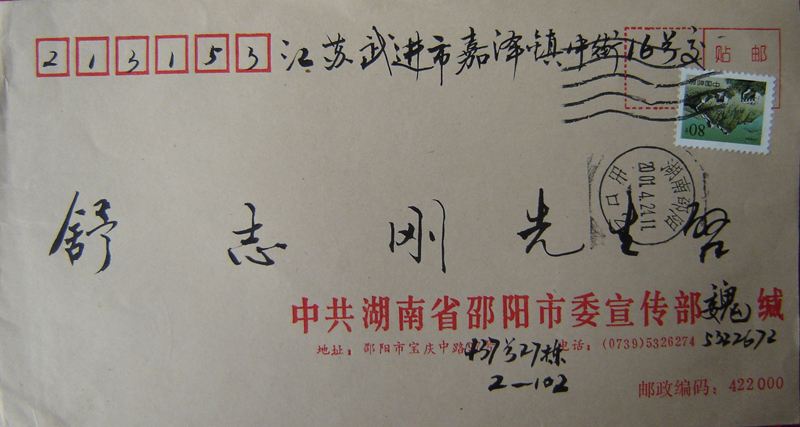 213153 江苏武进市嘉泽镇中街16号交
贴 邮
中国邮政
80分
湖南邵阳
2001.4.24.11
出口
舒志刚先生启
中共湖南省邵阳市委宣传部魏缄
地址：邵阳市宝庆中路437号27栋 电话：(0739)5326274 5322672
2—102
邮政编码：422000